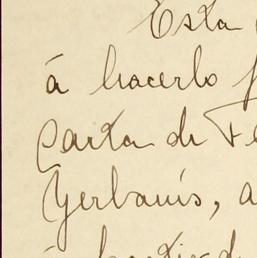 Esta
á hacerlo
Carta de Fe
Yerbanís, a